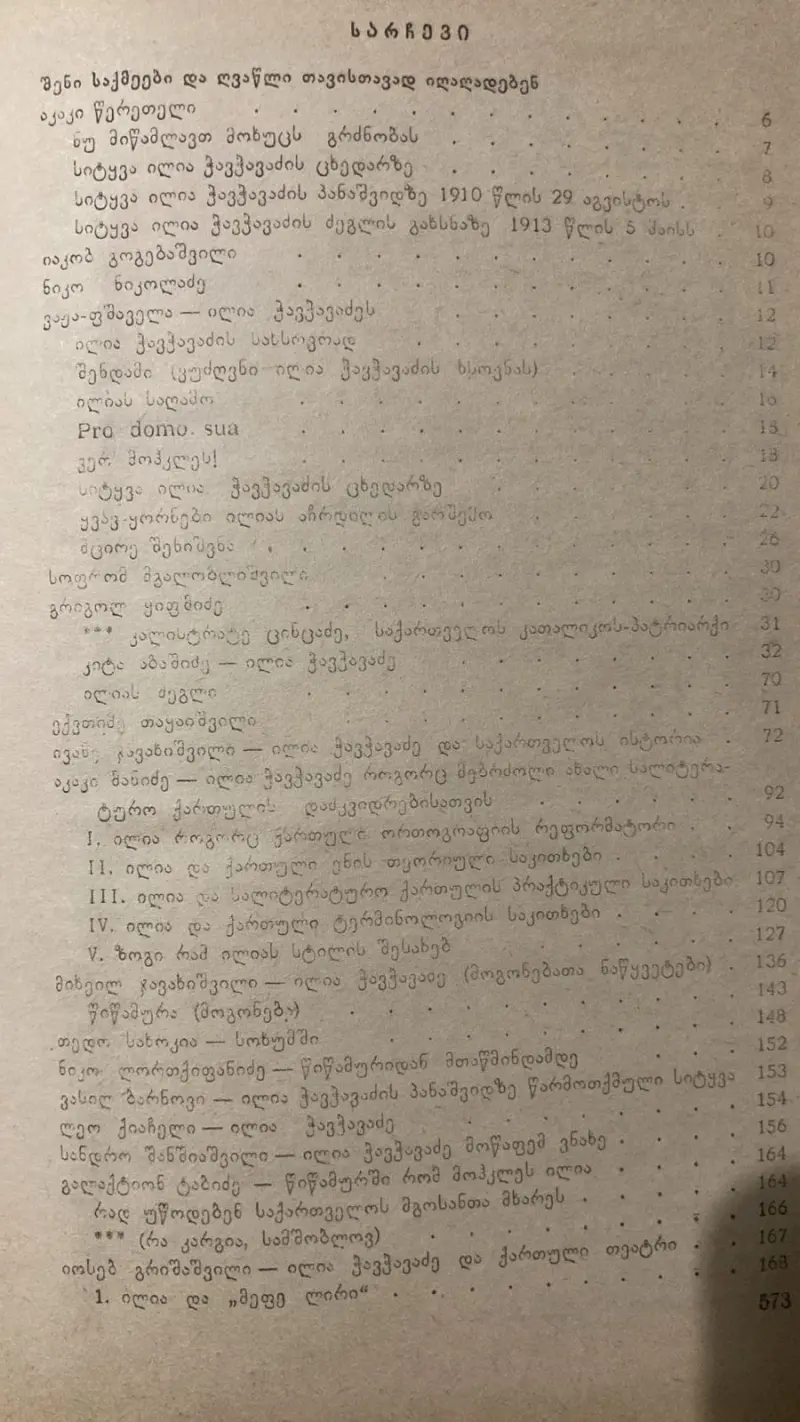 სარჩევი
შენი საქმეები და ღვაწლი თავისთავად იღაღადებენ
აკაკი წერეთელი . . . . . . . . . 6
ნუ მიწამლავთ მოხუცს გრძნობას . . . . . . 7
სიტყვა ილია ჭავჭავაძის ცხედარზე . . . . . . 8
სიტყვა ილია ჭავჭავაძის პანაშვიდზე 1910 წლის 29 აგვისტოს . 9
სიტყვა ილია ჭავჭავაძის ძეგლის გახსნაზე 1913 წლის 5 მაისს . 10
იაკობ გოგებაშვილი . . . . . . . . 10
ნიკო ნიკოლაძე . . . . . . . . 11
ვაჟა-ფშაველა — ილია ჭავჭავაძეს . . . . . . 12
ილია ჭავჭავაძის სახსოვრად . . . . . . 12
შენდამი (ვუძღვნი ილია ჭავჭავაძის ხსოვნას) . . . . 14
ილიას საღამო . . . . . . . . 16
Pro domo. sua . . . . . . . . 18
ვერ მოჰკლეს! . . . . . . . . 18
სიტყვა ილია ჭავჭავაძის ცხედარზე . . . . . 20
ყვავ-ყორნები ილიას აჩრდილის გარშემო . . . . 22
მცირე შენიშვნა . . . . . . . . 26
სოფრომ მგალობლიშვილი . . . . . . . 30
გრიგოლ ყიფშიძე . . . . . . . . 30
*** კალისტრატე ცინცაძე, საქართველოს კათალიკოს-პატრიარქი 31
კიტა აბაშიძე — ილია ჭავჭავაძე . . . . . 32
ილიას ძეგლი . . . . . . . . 70
ექვთიმე თაყაიშვილი . . . . . . . 71
ივანე ჯავახიშვილი — ილია ჭავჭავაძე და საქართველოს ისტორია . 72
აკაკი შანიძე — ილია ჭავჭავაძე როგორც მებრძოლი ახალი სალიტერა-
ტურო ქართულის დამკვიდრებისათვის . . . . . 92
I. ილია როგორც ქართული ორთოგრაფიის რეფორმატორი . . 94
II. ილია და ქართული ენის თეორიული საკითხები . . . . 104
III. ილია და სალიტერატურო ქართულის პრაქტიკული საკითხები 107
IV. ილია და ქართული ტერმინოლოგიის საკითხები . . . . 120
V. ზოგი რამ ილიას სტილის შესახებ . . . . . 127
მიხეილ ჯავახიშვილი — ილია ჭავჭავაძე (მოგონებათა ნაწყვეტები) . 136
წიწამურა (მოგონება) . . . . . . . 143
თედო სახოკია — სოხუმში . . . . . . 148
ნიკო ლორთქიფანიძე — წიწამურიდან მთაწმინდამდე . . . 152
ვასილ ბარნოვი — ილია ჭავჭავაძის პანაშვიდზე წარმოთქმული სიტყვა 153
ლეო ქიაჩელი — ილია ჭავჭავაძე . . . . . 154
სანდრო შანშიაშვილი — ილია ჭავჭავაძე მოწაფემ ვნახე . . . 156
გალაქტიონ ტაბიძე — წიწამურში რომ მოჰკლეს ილია . . . 164
რად უწოდებენ საქართველოს მგოსანთა მხარეს . . . . 164
*** (რა კარგია, სამშობლოვ) . . . . . . 166
იოსებ გრიშაშვილი — ილია ჭავჭავაძე და ქართული თეატრი . . 167
1. ილია და „მეფე ლირი“ . . . . . . . 168
573